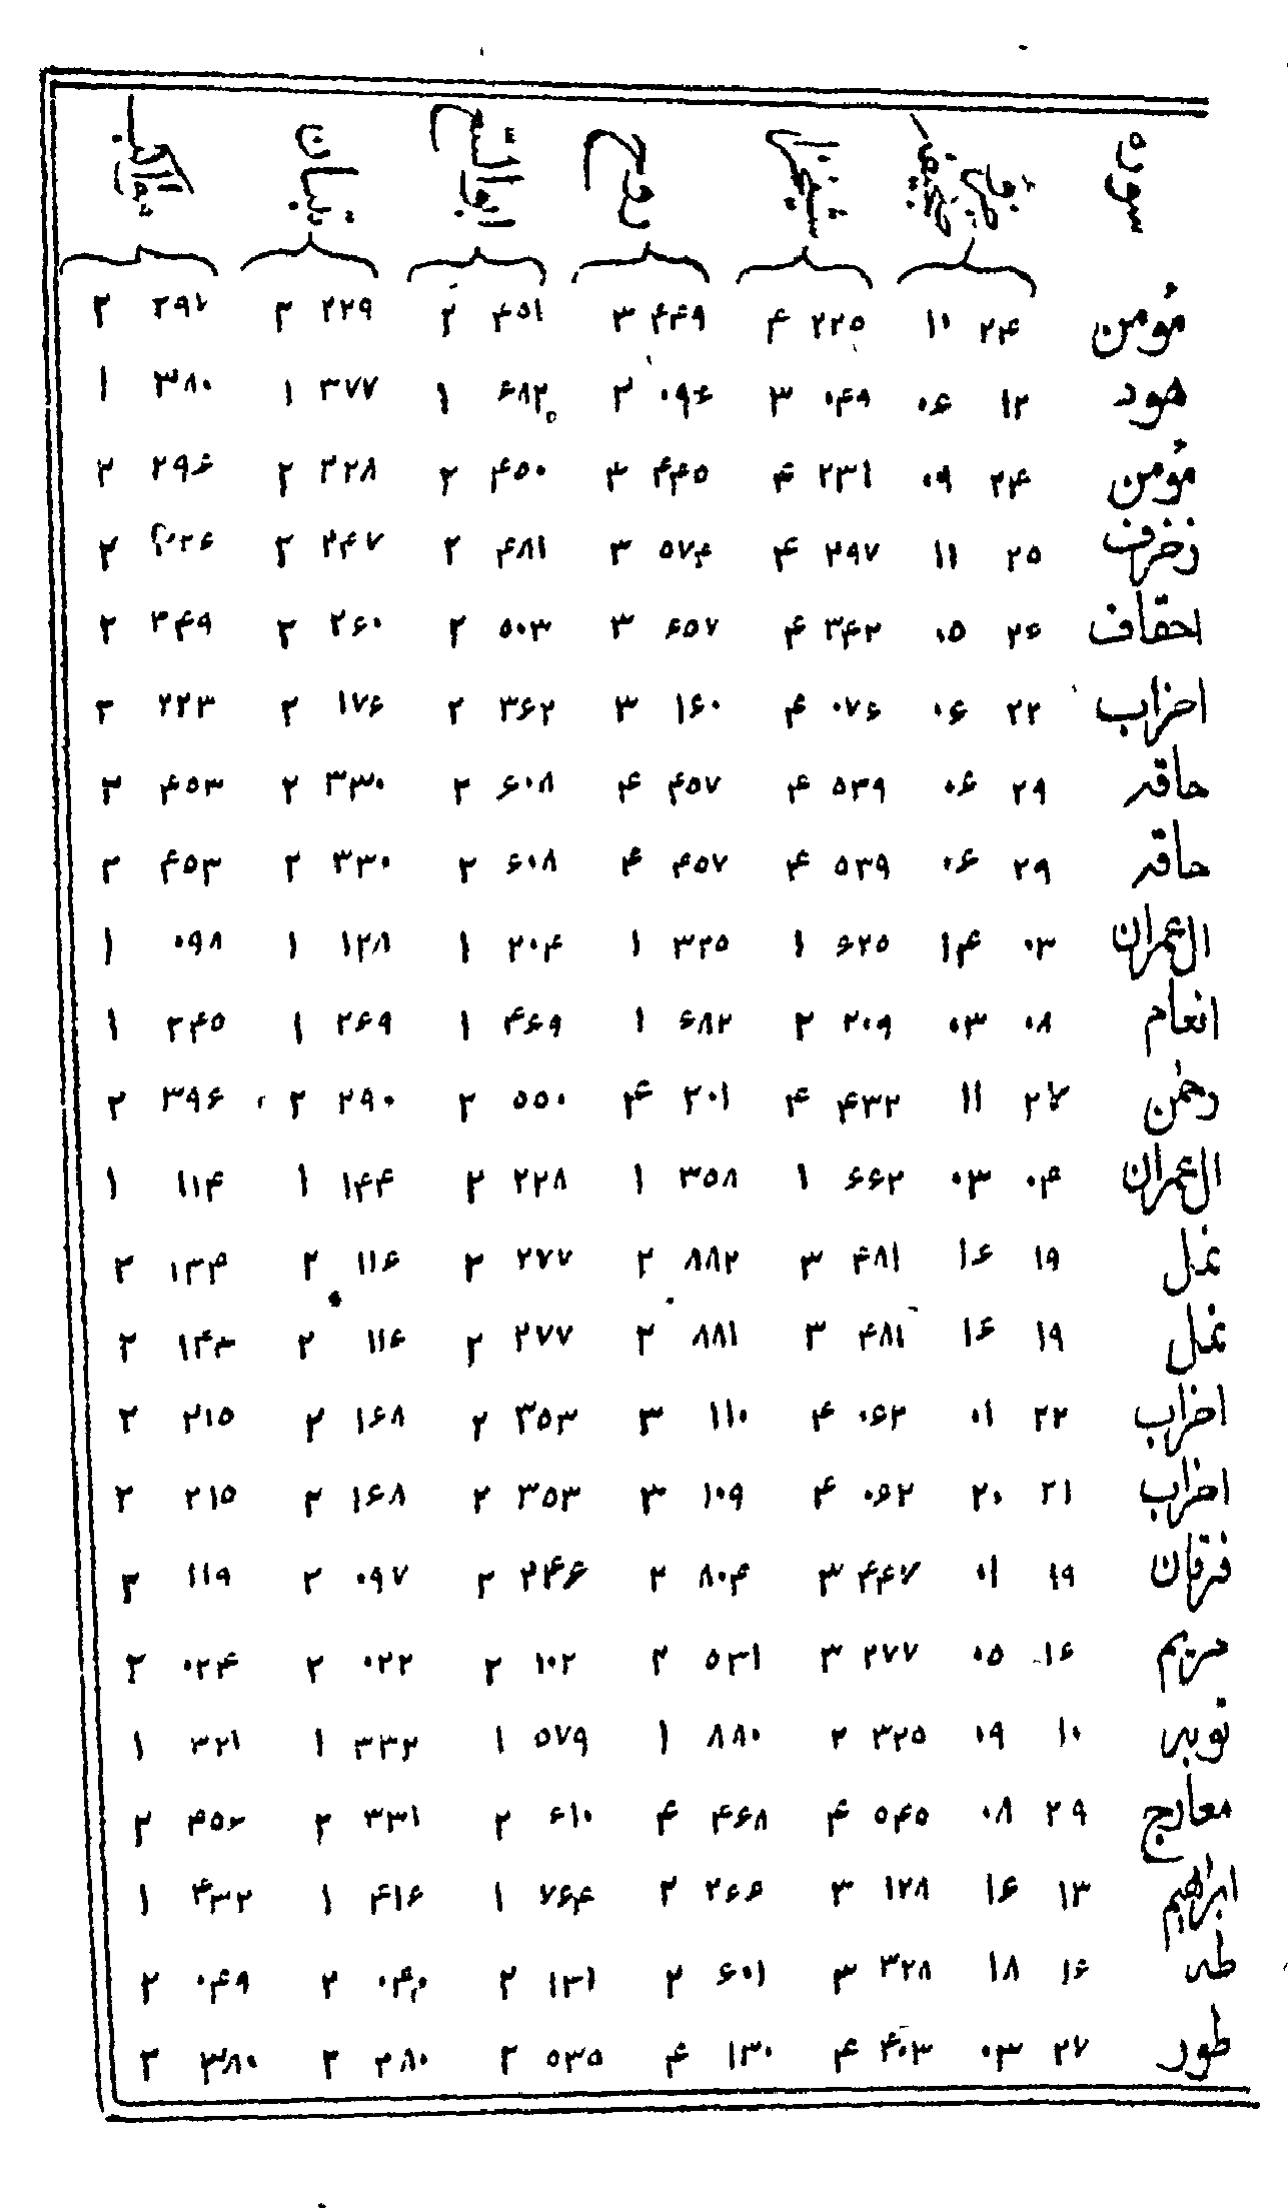 سوره تبیان
مؤمن ۲۴ ۱۰ ۲۲۵ ۴ ۴۴۹ ۳ ۴۵۱ ۲ ۲۲۹ ۲ ۲۹۷ ۲
هود ۱۲ ۰۶ ۰۴۹ ۳ ۰۹۶ ۲ ۶۸۲ ۱ ۳۷۷ ۱ ۳۸۰ ۱
مؤمن ۲۴ ۰۹ ۲۳۱ ۴ ۴۴۵ ۳ ۴۵۰ ۲ ۲۲۸ ۲ ۲۹۶ ۲
زخرف ۲۵ ۱۱ ۲۹۷ ۴ ۵۷۴ ۳ ۴۸۱ ۲ ۲۴۷ ۲ ۲
احقاف ۲۶ ۰۵ ۳۴۲ ۴ ۶۵۷ ۳ ۵۰۳ ۲ ۲۶۰ ۲ ۳۴۹ ۲
احزاب ۲۲ ۰۶ ۰۷۶ ۴ ۱۶۰ ۳ ۳۶۲ ۲ ۱۷۶ ۲ ۲۲۳ ۲
حاقه ۲۹ ۰۶ ۵۳۹ ۴ ۴۵۷ ۴ ۶۰۸ ۲ ۳۳۰ ۲ ۴۵۳ ۲
حاقه ۲۹ ۰۶ ۵۳۹ ۴ ۴۵۷ ۴ ۶۰۸ ۲ ۳۳۰ ۲ ۴۵۳ ۲
ال عمران ۰۳ ۱۴ ۶۲۵ ۱ ۳۲۵ ۱ ۲۰۴ ۱ ۱۲۸ ۱ ۰۹۸ ۱
انعام ۰۸ ۰۳ ۲۰۹ ۲ ۶۸۲ ۱ ۴۶۹ ۱ ۲۶۹ ۱ ۲۴۵ ۱
رحمن ۲۷ ۱۱ ۴۳۲ ۴ ۲۰۱ ۴ ۵۵۰ ۲ ۲۹۰ ۲ ۳۹۶ ۲
ال عمران ۰۴ ۰۳ ۶۶۲ ۱ ۳۵۸ ۱ ۲۲۸ ۲ ۱۴۴ ۱ ۱۱۴ ۱
نمل ۱۹ ۱۶ ۴۸۱ ۳ ۸۸۲ ۲ ۲۷۷ ۲ ۱۱۶ ۲ ۱۳۴ ۲
نمل ۱۹ ۱۶ ۴۸۱ ۳ ۸۸۱ ۲ ۲۷۷ ۲ ۱۱۶ ۲ ۱۴۳ ۲
احزاب ۲۲ ۰۱ ۰۶۲ ۴ ۱۱۰ ۳ ۳۵۳ ۲ ۱۶۸ ۲ ۲۱۵ ۲
احزاب ۲۱ ۲۰ ۰۶۲ ۴ ۱۰۹ ۳ ۳۵۳ ۲ ۱۶۸ ۲ ۲۱۵ ۲
فرقان ۱۹ ۰۱ ۴۴۷ ۳ ۸۰۴ ۲ ۲۴۶ ۲ ۰۹۷ ۲ ۱۱۹ ۲
مریم ۱۶ ۰۵ ۲۷۷ ۳ ۵۳۱ ۲ ۱۰۲ ۲ ۰۲۲ ۲ ۰۲۴ ۲
توبه ۱۰ ۰۹ ۳۲۵ ۲ ۸۸۰ ۱ ۵۷۹ ۱ ۳۳۲ ۱ ۳۲۱ ۱
معارج ۲۹ ۰۸ ۵۴۵ ۴ ۴۶۸ ۴ ۶۱۰ ۲ ۳۳۱ ۲ ۴۵۶ ۲
ابراهیم ۱۳ ۱۶ ۱۲۸ ۳ ۲۶۶ ۲ ۷۶۴ ۱ ۴۱۶ ۱ ۴۳۲ ۱
طه ۱۶ ۱۸ ۳۲۸ ۳ ۶۰۱ ۲ ۱۳۱ ۲ ۰۴۰ ۲ ۰۴۹ ۲
طور ۲۷ ۰۳ ۴۰۳ ۴ ۱۳۰ ۴ ۵۳۵ ۲ ۲۸۰ ۲ ۳۸۰ ۲